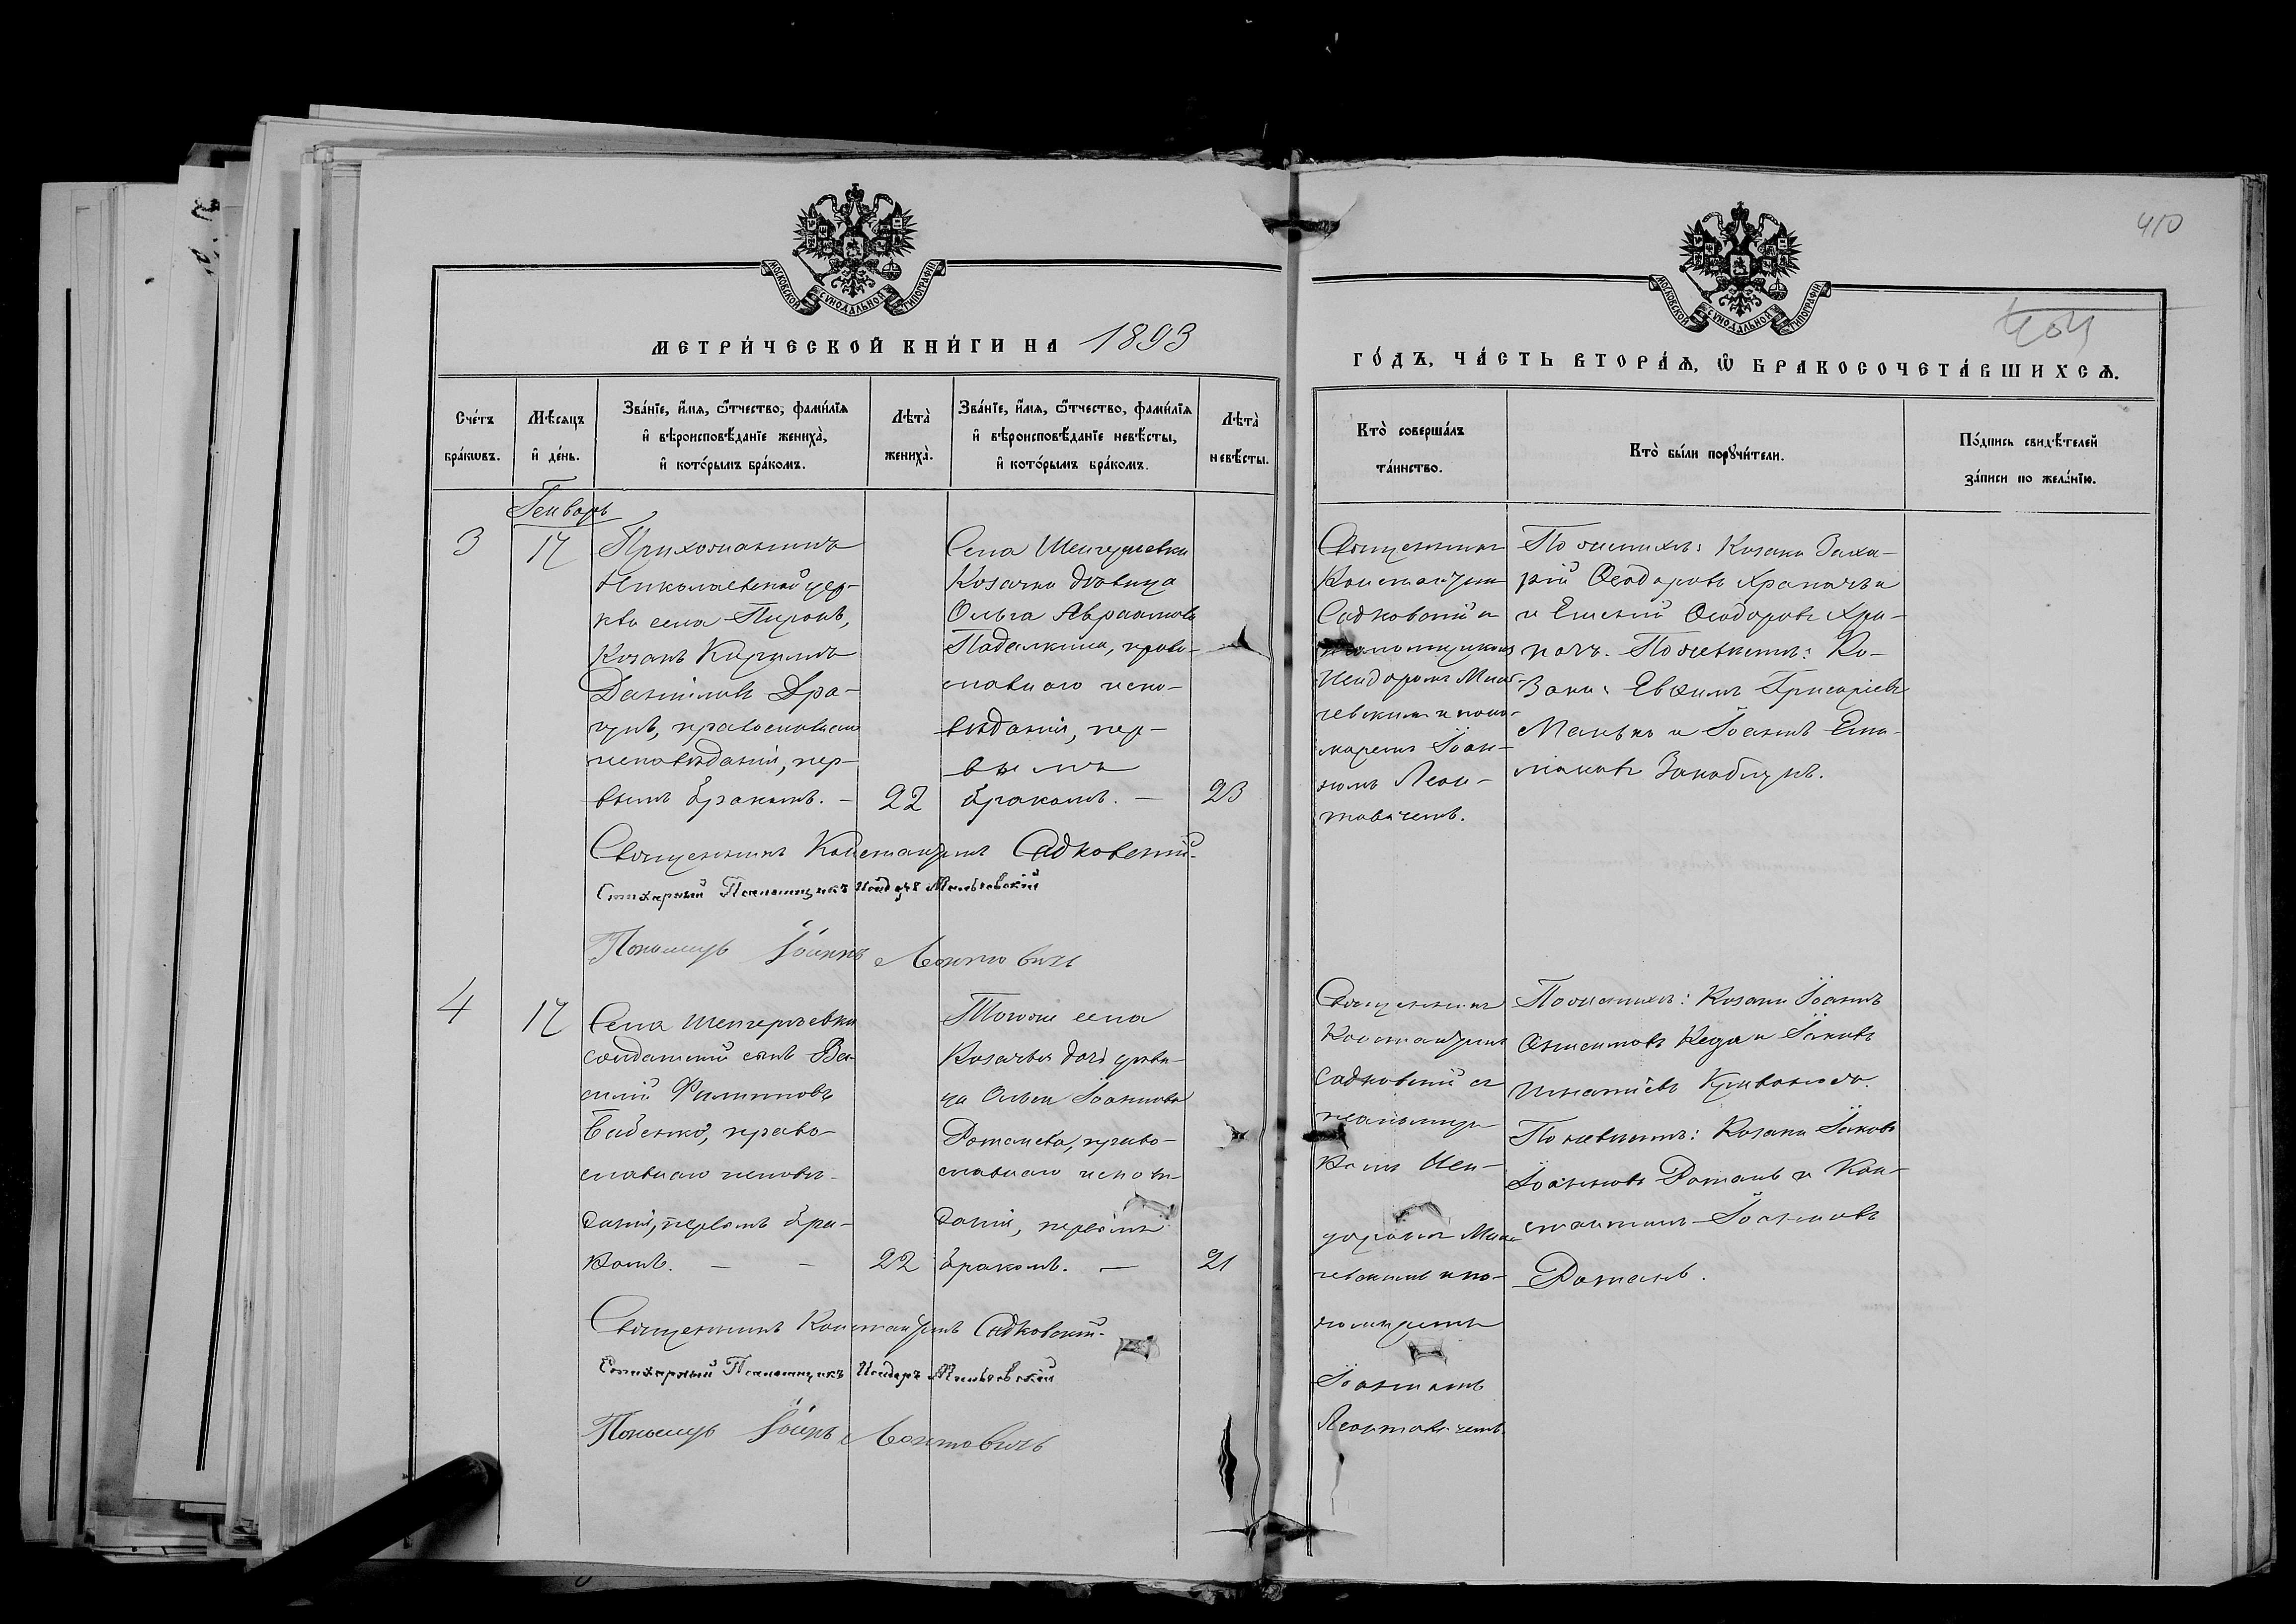 410
МОСКОВСКОЙ СѴНОДАЛЬНОЙ ТИПОГРАФІИ
МОСКОВСКОЙ СѴНОДАЛЬНОЙ ТИПОГРАФІИ
МЕТРИ́ЧЕСКОЙ КНИ́ГИ НА 1893
ГО́ДЪ, ЧА́СТЬ ВТОРА́Ѧ, Ѽ БРАКОСОЧЕТА́ВШИХСѦ.
Сче́тъ
бра́кѡвъ.
Мѣ́сяцъ
и҆ де́нь.
Зва́нїе, и҆́мѧ, ѻ҆́тчество, фами́лїѧ
и҆ вѣроисповѣ́данїе женихà,
и҆ кото́рымъ бра́комъ.
Лѣтà
женихà.
Зва́нїе, и҆́мѧ, ѻ҆́тчество, фами́лїѧ
и҆ вѣроисповѣ́данїе невѣ́сты,
и҆ кото́рымъ бра́комъ.
Лѣтà
невѣ́сты.
Кто̀ соверша́лъ
та́инство.
Кто̀ бы́ли порꙋчи́тели.
По́дпись свидѣ́телей
за́писи по жела́нїю.
Генварь
3
17
Прихожанинъ
Николаевской цер-
кви села Пирогъ,
Козакъ Кириллъ
Даніиловъ Дра-
православнаго
исповѣданія, пер-
вымъ бракомъ. –
22
Села
Козачка дѣвица
Ольга Авраамова
право-
славнаго испо-
вѣданія, пер-
вымъ
бракомъ. –
23
Священникъ
Константинъ
Садковскій и
псаломщикомъ
Исидоромъ Миль-
чевскимъ и поно-
маремъ Іоан-
номъ Леон-
товичемъ.
По женихѣ: Козаки Заха-
рій Ѳеодоровъ Храпачъ и
и Ѳеодоровъ Хра-
пачъ. По невѣстѣ: Ко-
заки: Евѳимъ Григоріевъ
Манько и Іоаннъ
Священникъ Константинъ Садковскій.
Стихарный Псаломщикъ Исидоръ Мильчевскій
Пономарь Іоаннъ Леонтовичъ
4
17
Села
солдатскій сынъ Ва-
силій Филипповъ
Бабенко, право-
славнаго исповѣ-
данія, первымъ бра-
комъ. – –
22
Того же села
Козачья дочь дѣви-
ца Ольга Іоаннова
право-
славнаго исповѣ-
данія, первымъ
бракомъ. –
21
Священникъ
Константинъ
Садковскій съ
псаломщи-
комъ Иси-
доромъ Миль-
чевскимъ и по-
номаремъ
Іоанномъ
Леонтовичемъ.
По женихѣ: Козаки Іоаннъ
Онисимовъ и Іаковъ
Игнатіевъ
По невѣстѣ: Козаки Іаковъ
Іоанновъ Ротань и Кон-
стантинъ Іоанновъ
Ротань.
Священникъ Константинъ Садковскій.
Стихарный Псаломщикъ Исидоръ Мильчевскій
Пономарь Іоаннъ Леонтовичъ